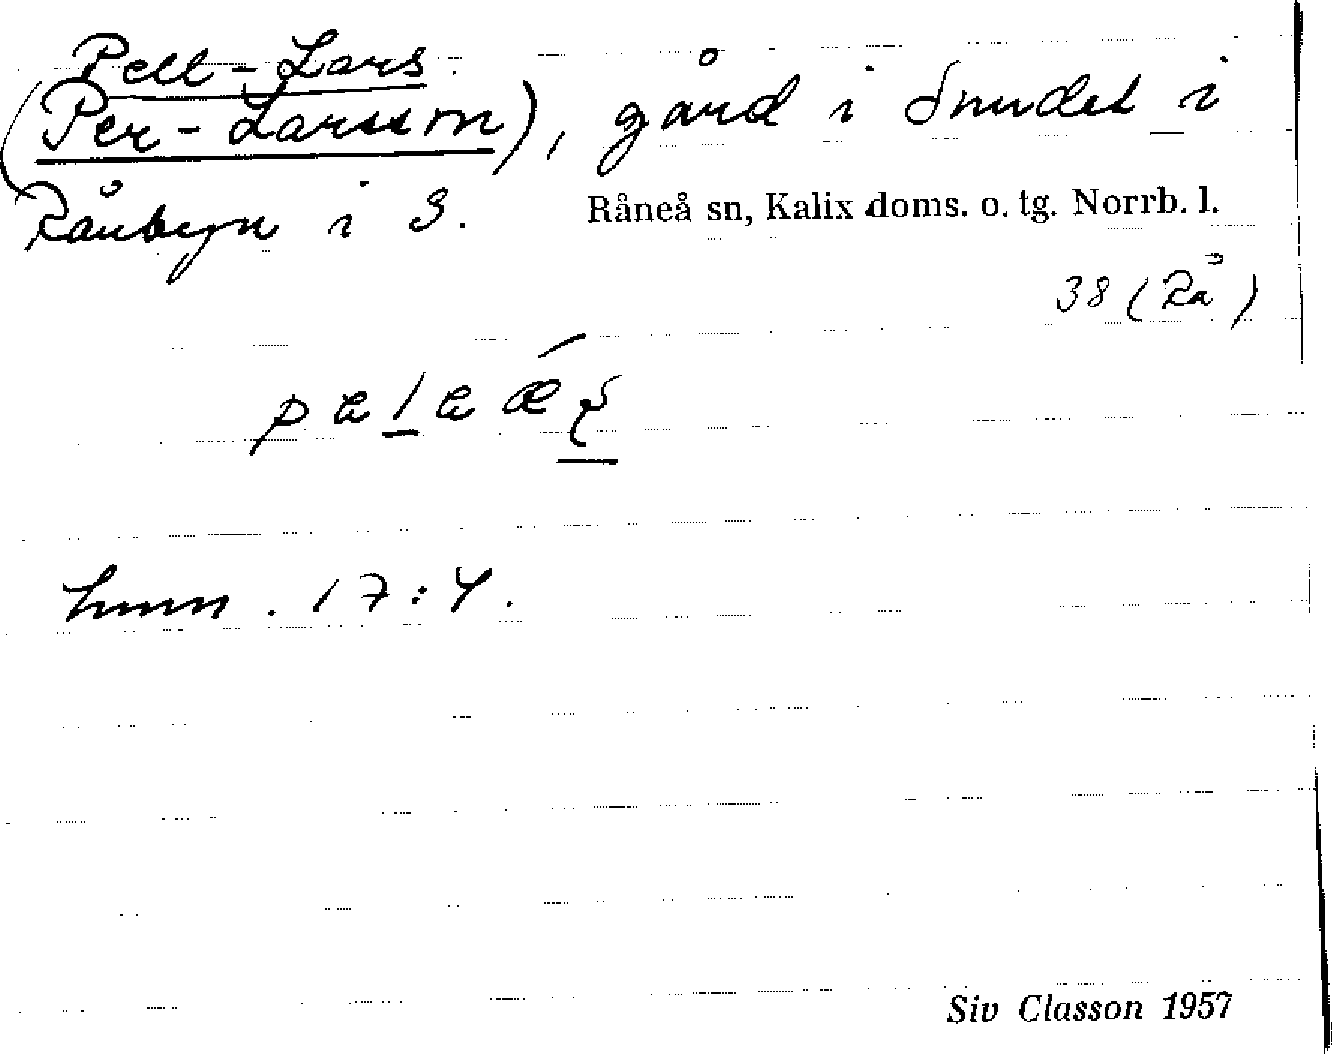 Pell-Lars
(Per-Larsson), gård i Snudet i
Rånbyn i S. Råneå sn, Kalix doms. o. tg. Norrb. l.
38 (Rå)
hmn. 17:4.
Siv Classon 1957